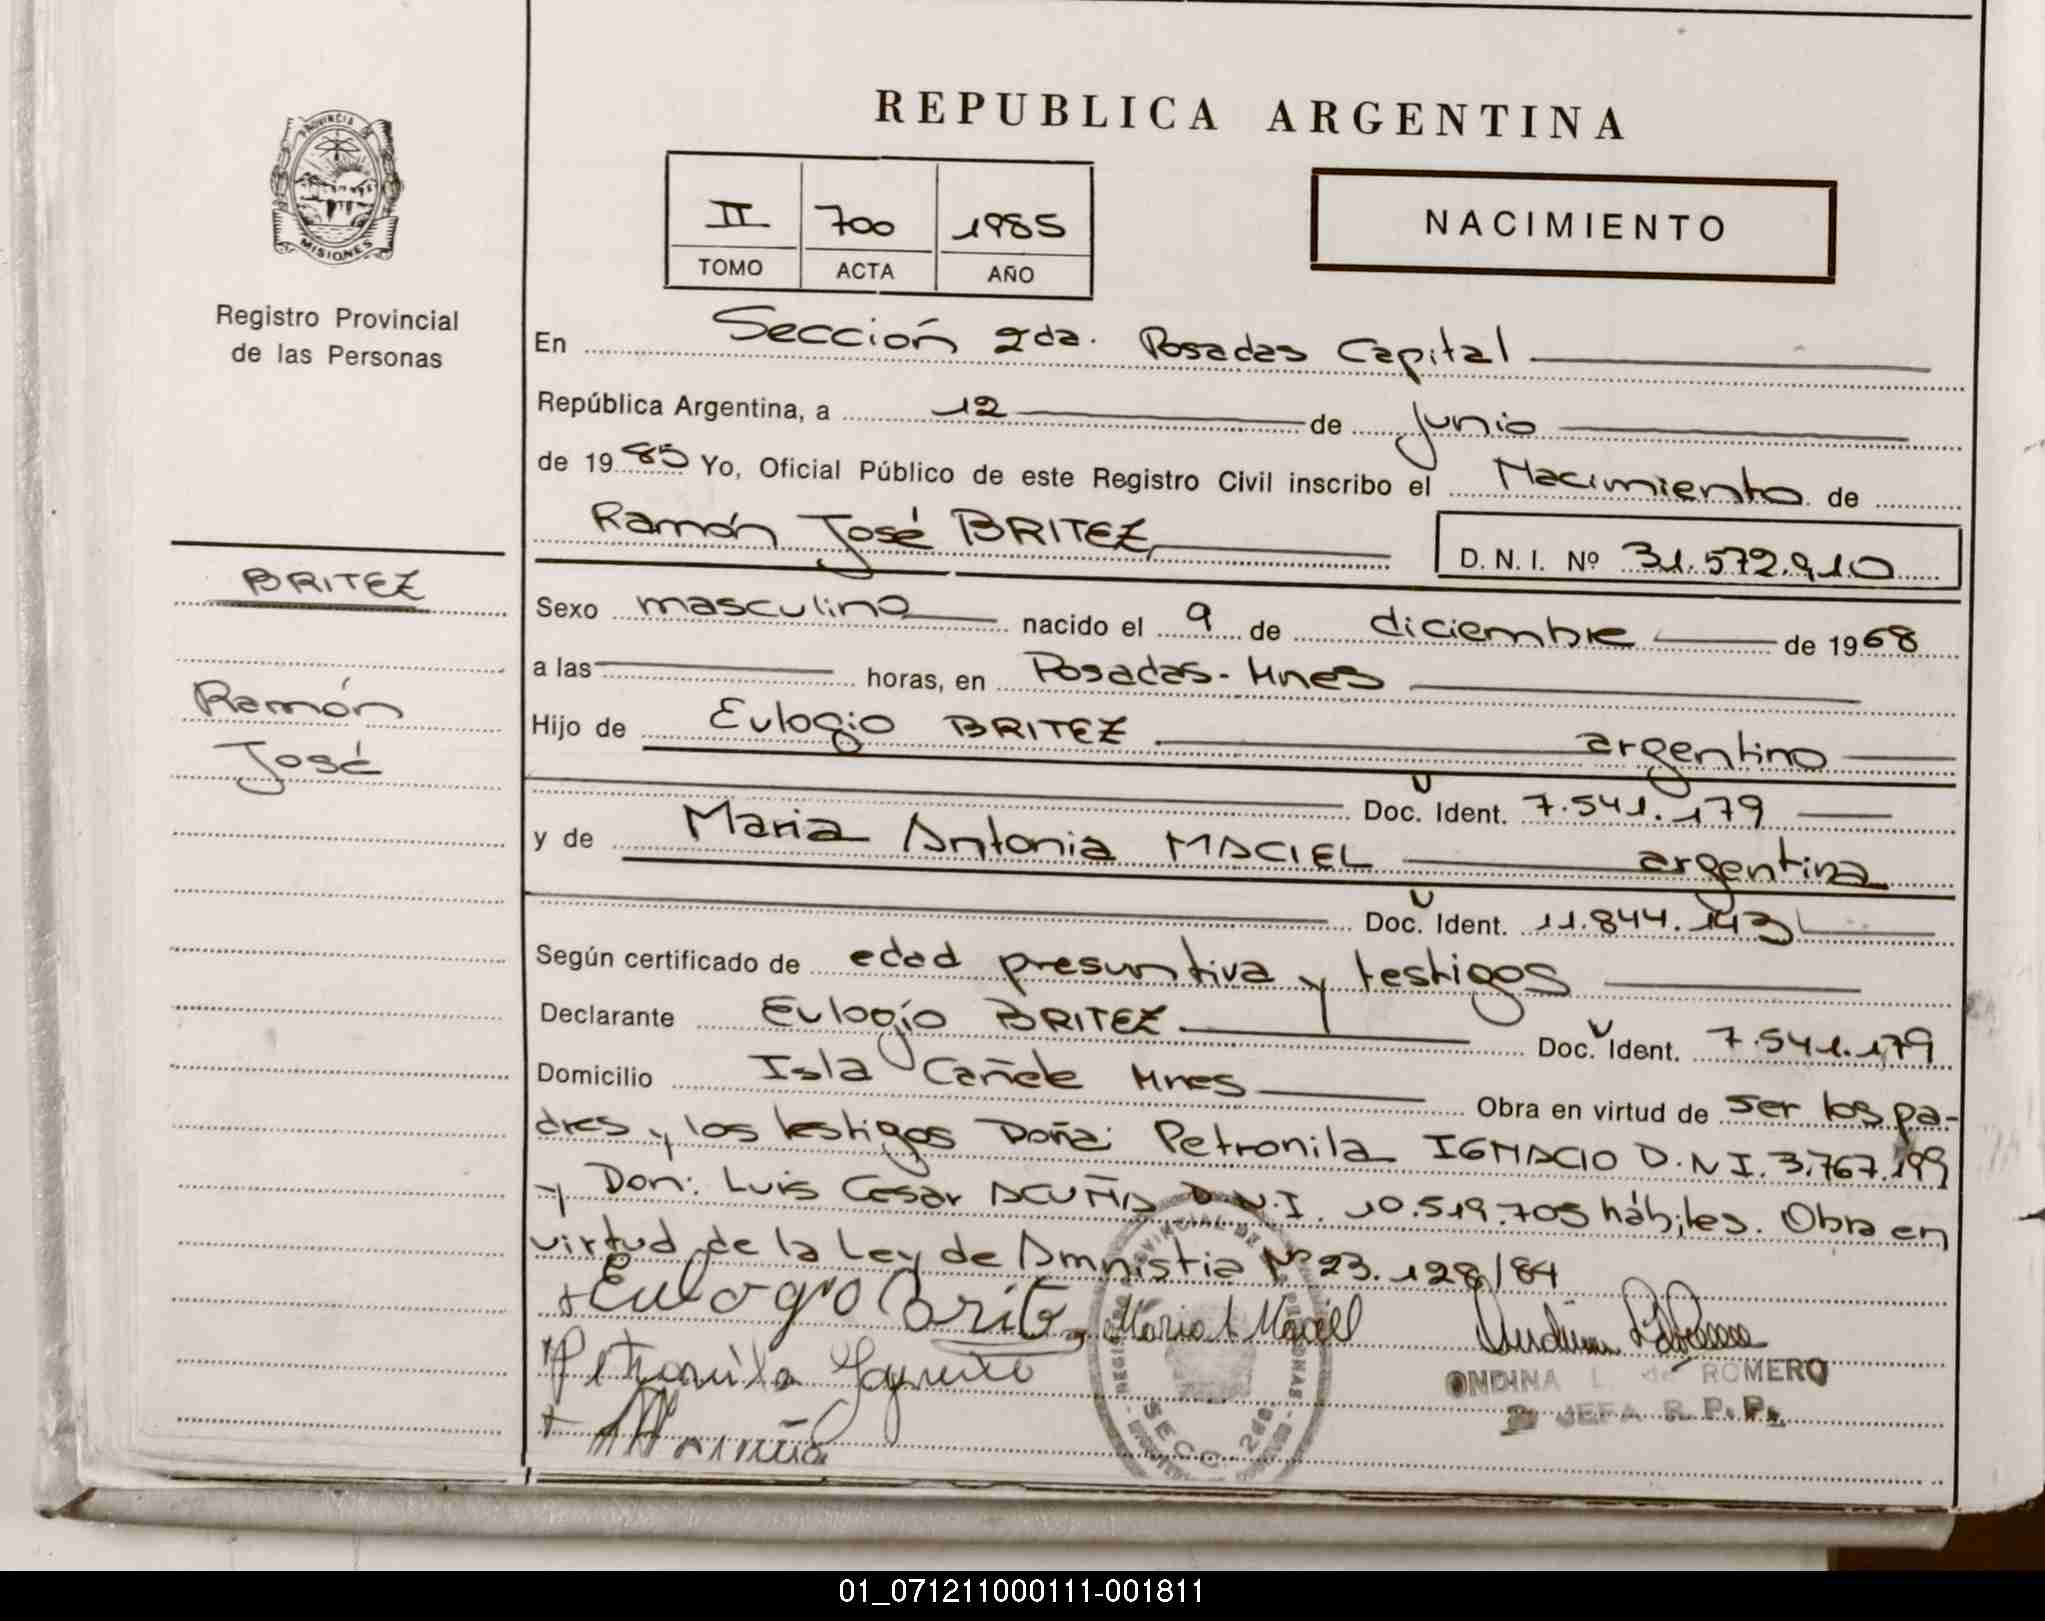 REPUBLICA ARGENTINA
PROVINCIA DE
MISIONES
Registro Provincial
de las Personas
II 700 1985
TOMO ACTA AÑO
NACIMIENTO
En Sección 2da. Posadas Capital
República Argentina, a 12 de junio
de 1985 Yo, Oficial Público de este Registro Civil inscribo el Nacimiento de
Ramón José BRITEZ
D. N. I. Nº 31.572.910
BRITEZ
Ramón
José
Sexo masculino nacido el 9 de diciembre de 1968
a las horas, en Posadas - Mnes
Hijo de Eulogio BRITEZ argentino
Doc. Ident. 7.541.179
y de Maria Antonia MACIEL argentina
Doc. Ident. 11.844.143
Según certificado de edad presuntiva y testigos
Declarante Eulogio BRITEZ Doc. Ident. 7.541.179
Domicilio Isla Cañete Mnes Obra en virtud de ser los pa-
dres y los testigos Doña: Petronila IGNACIO D.N.I. 3.767.199
y Don: Luis Cesar ACUÑA D.N.I. 10.519.705 hábiles. Obra en
virtud de la Ley de Amnistia Nº 23.128/84
Eulogio Britez Maria A Maciel
Petronila Ignacio
Acuña
ONDINA L. de ROMERO
JEFA R. P. P.
SECC. 2da.
01_071211000111-001811